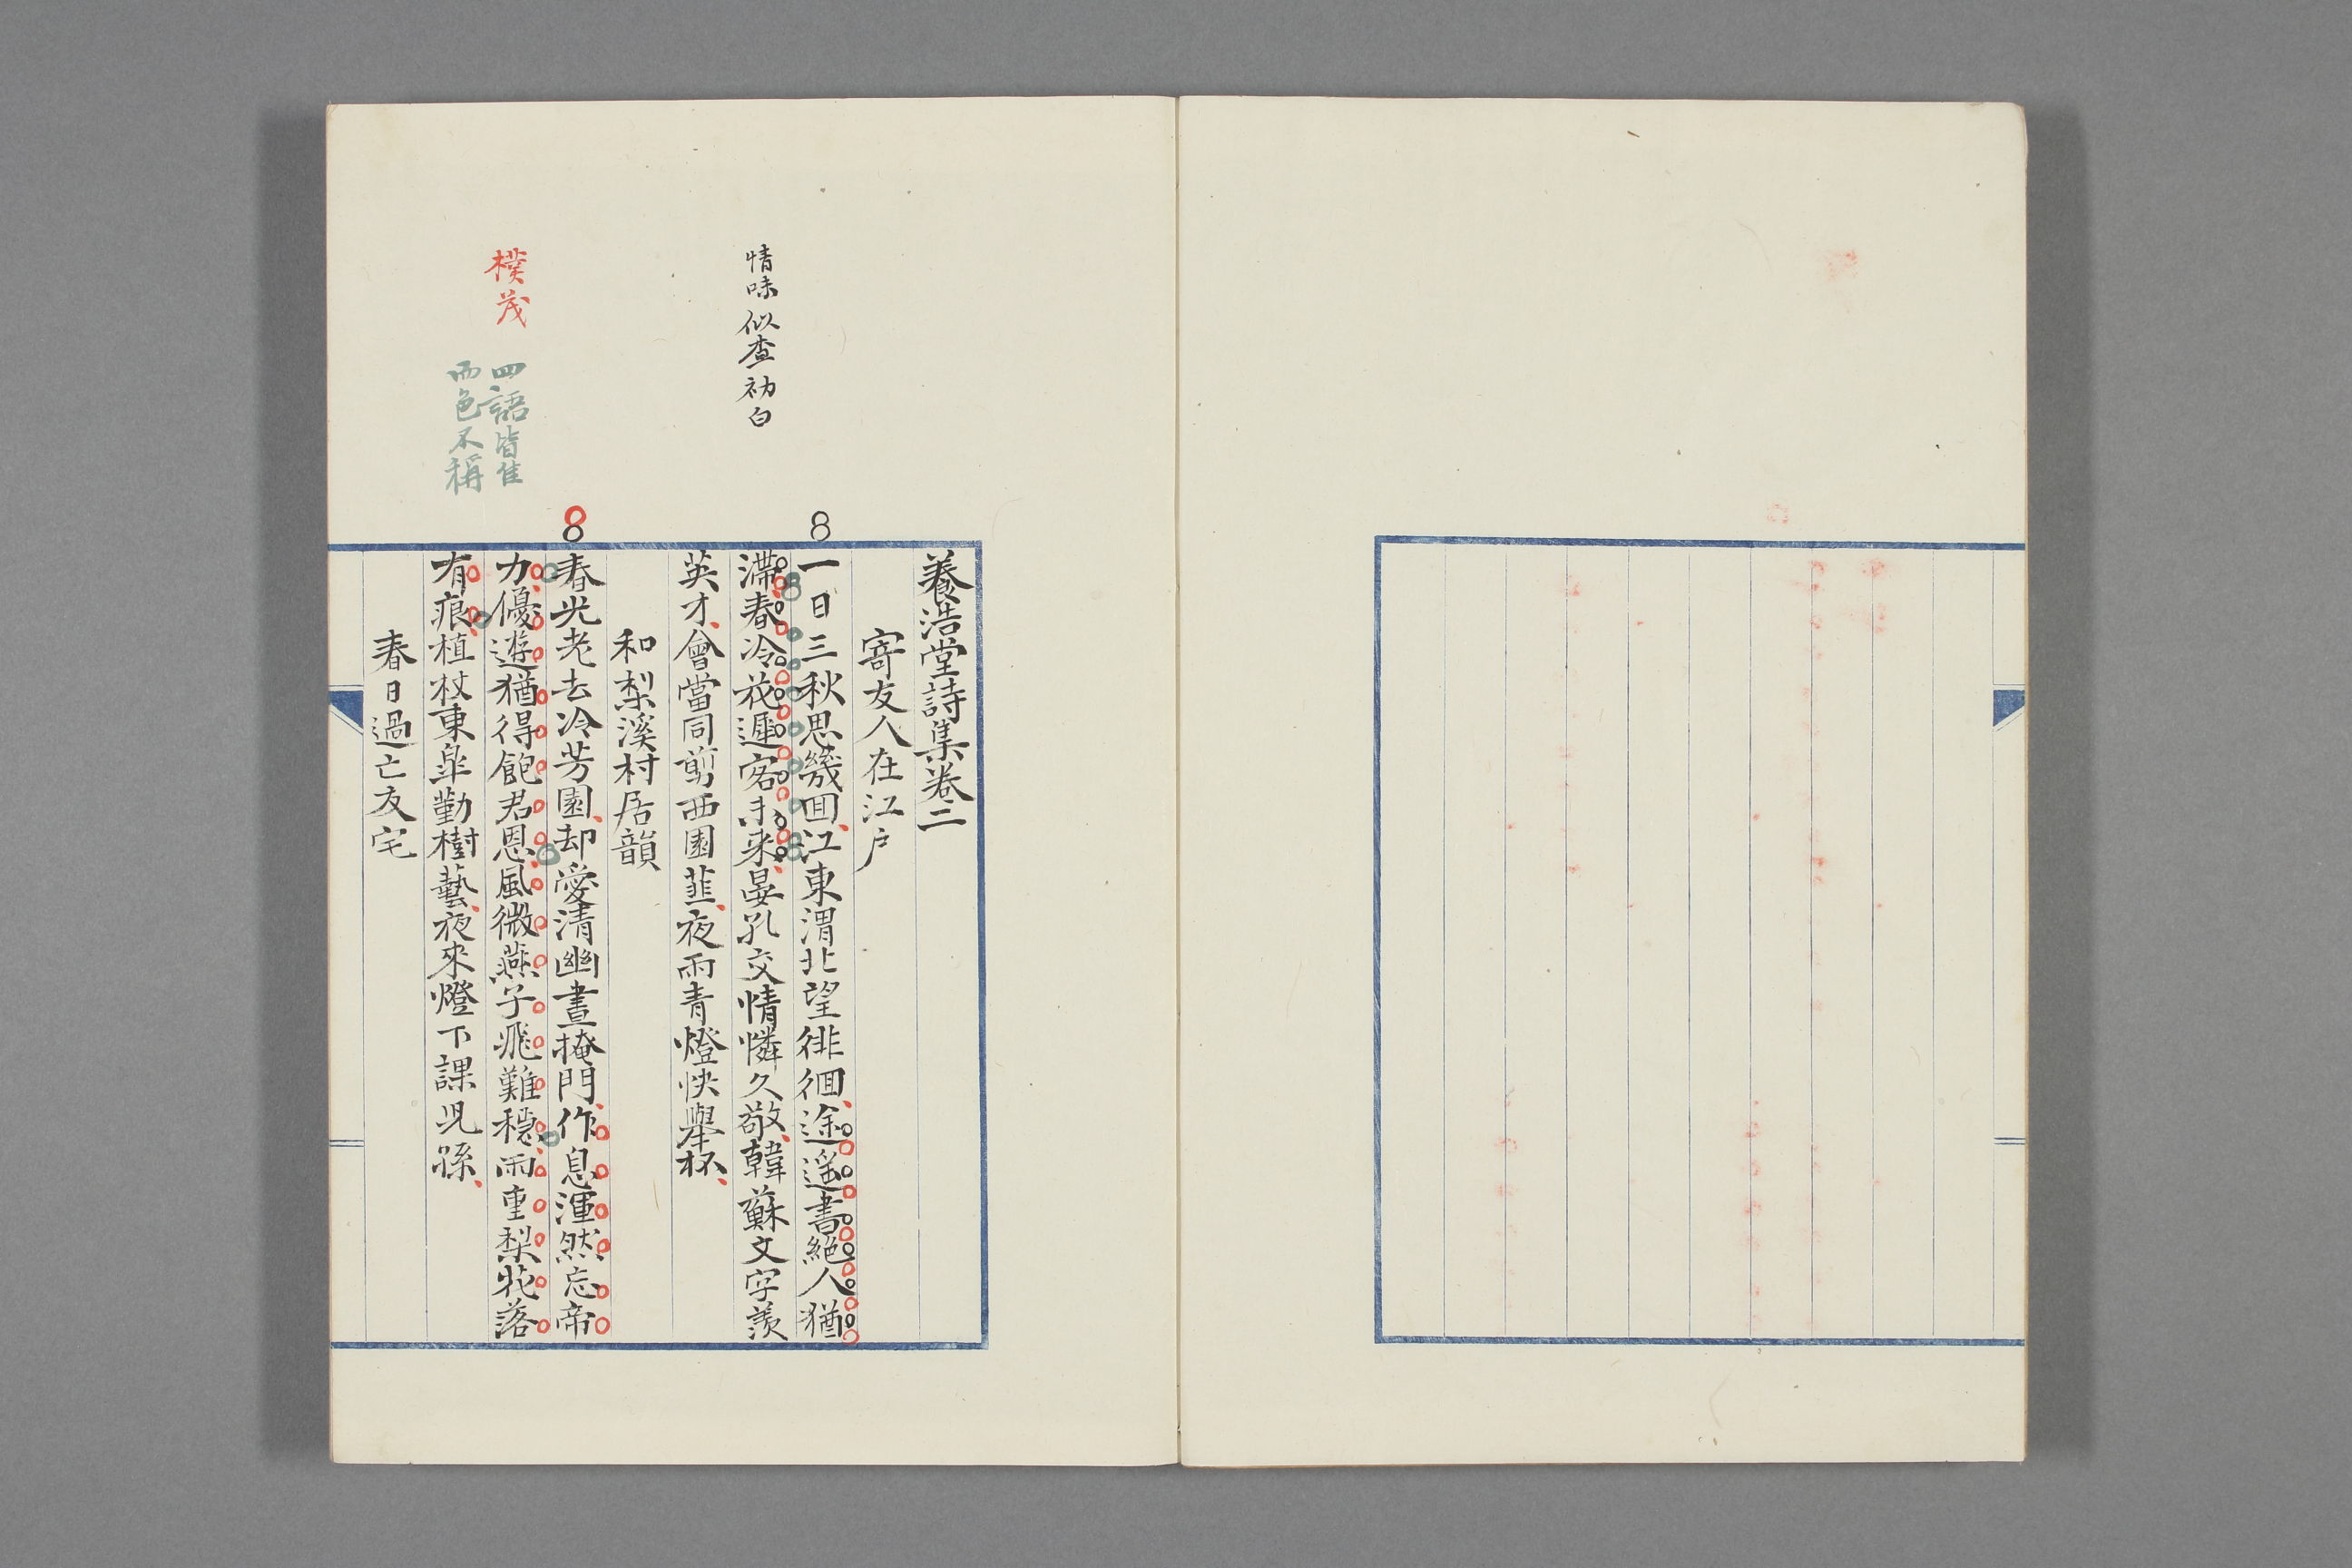 養浩堂詩集卷二
寄友人在江戶
一日三秋思幾回江東渭北望徘徊途遥書絶人猶
滯春冷花遲客未來晏孔交情憐久敬韓蘇文字羨
英才會當同剪西園韮夜雨青燈快舉杯
和梨溪村居韻
春光老去冷芳園却愛清幽晝掩門作息渾然忘帝
力優遊猶得飽君恩風微燕子飛難穩雨重梨花落
有痕植杖東皐勤樹藝夜來燈下課児孫
春日過亡友宅
情味似査初白
樸茂
四語皆佳
而色不稱